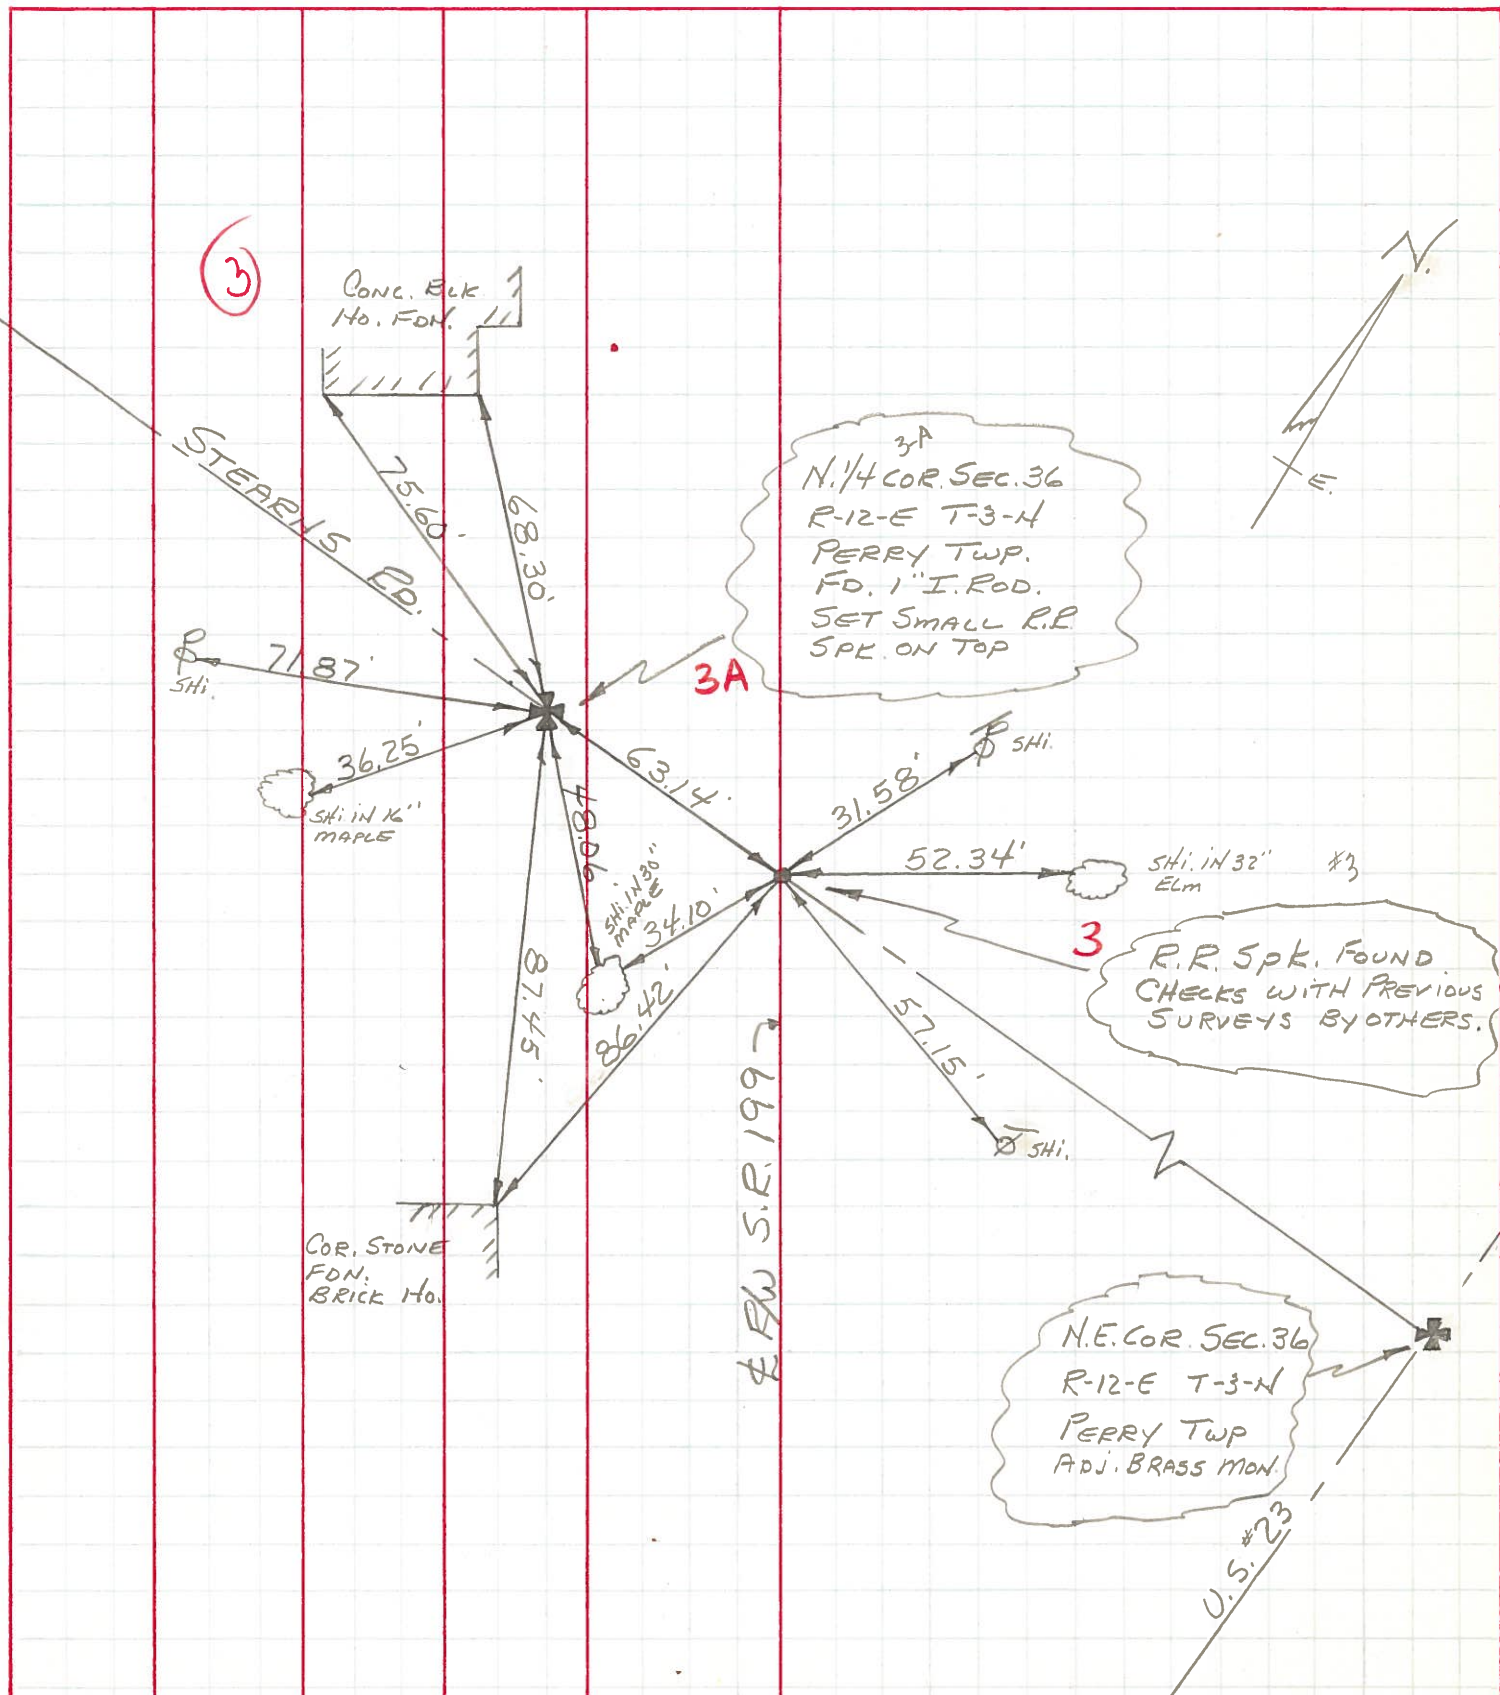 3
CONC. BLK
HO. FDN.
N.
E.
STEARNS RD.
75.60'
68.30'
3-A
N. 1/4 COR. SEC. 36
R-12-E T-3-N
PERRY TWP.
FD. 1" I. ROD.
SET SMALL R.R.
SPK. ON TOP
3A
71.87'
SHi.
36.25'
SHi. IN 16"
MAPLE
63.14'
48.06'
31.58'
SHi.
52.34'
SHi. IN 32"
ELM
#3
SHi. IN 30"
MAPLE
34.10'
3
R.R. SPK. FOUND
CHECKS WITH PREVIOUS
SURVEYS BY OTHERS.
87.45'
86.42'
57.15'
SHi.
℄ R/W S.R. 199
COR. STONE
FDN.
BRICK HO.
N.E. COR. SEC. 36
R-12-E T-3-N
PERRY TWP
ADJ. BRASS MON.
U.S. #23